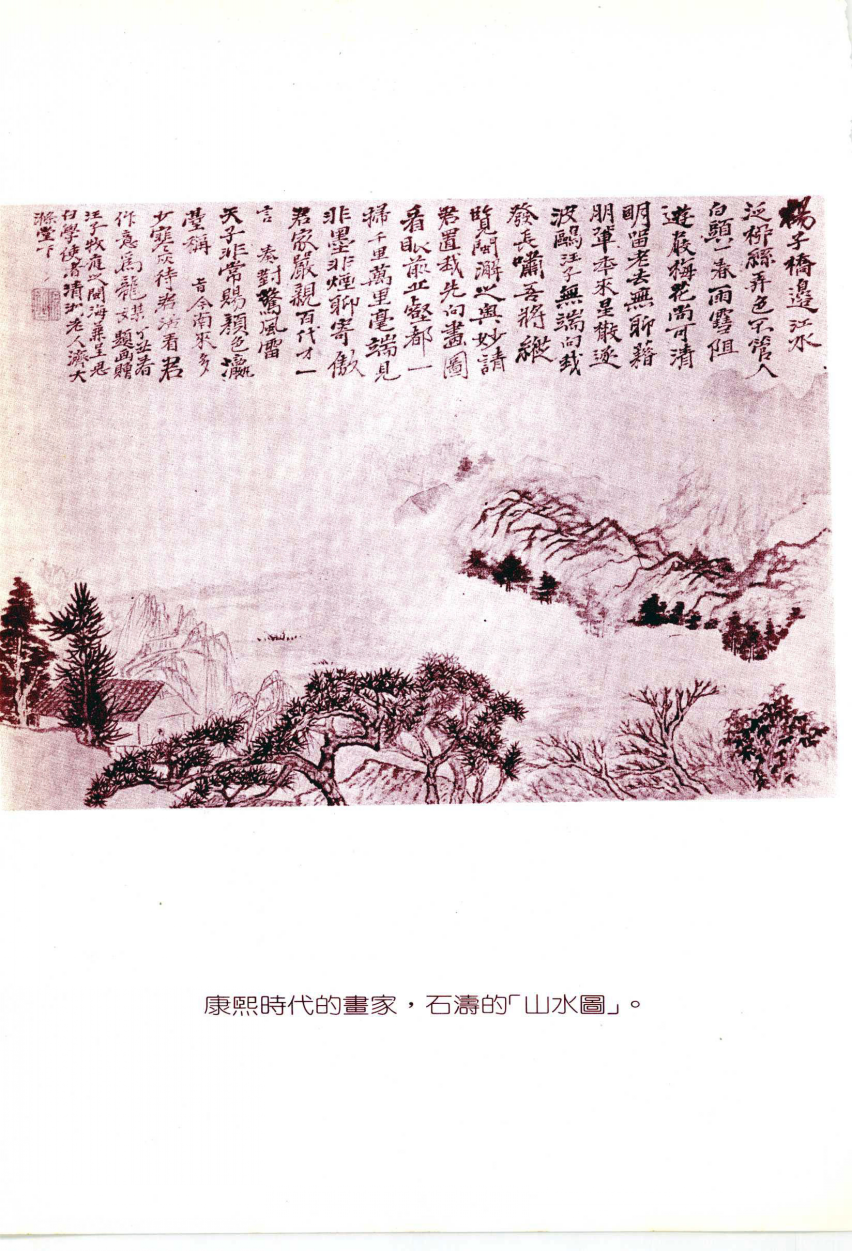 楊子橋邊江水
泛柳絲弄色不管人
白頭一春雨雪阻
遊嚴梅花尚可清
明留老去無聊藉
朋本來星散逐
波鷗汪子無端向我
發長嘯吾將縱
覽閩澥之興妙請
君置我先向畫圖
看眼前丘壑都一
掃千里萬里毫端見
非墨非煙聊寄傲
君家嚴親百代才一
言奏對驚風雷
天子非常賜顏色瀛
稱首今南來多
少寒灰待看君
作意為龍媒題畫贈
汪子牧庭遊閩海兼呈思
白學使者清湘老人濟大
滌堂下
康熙時代的畫家，石濤的「山水圖」。